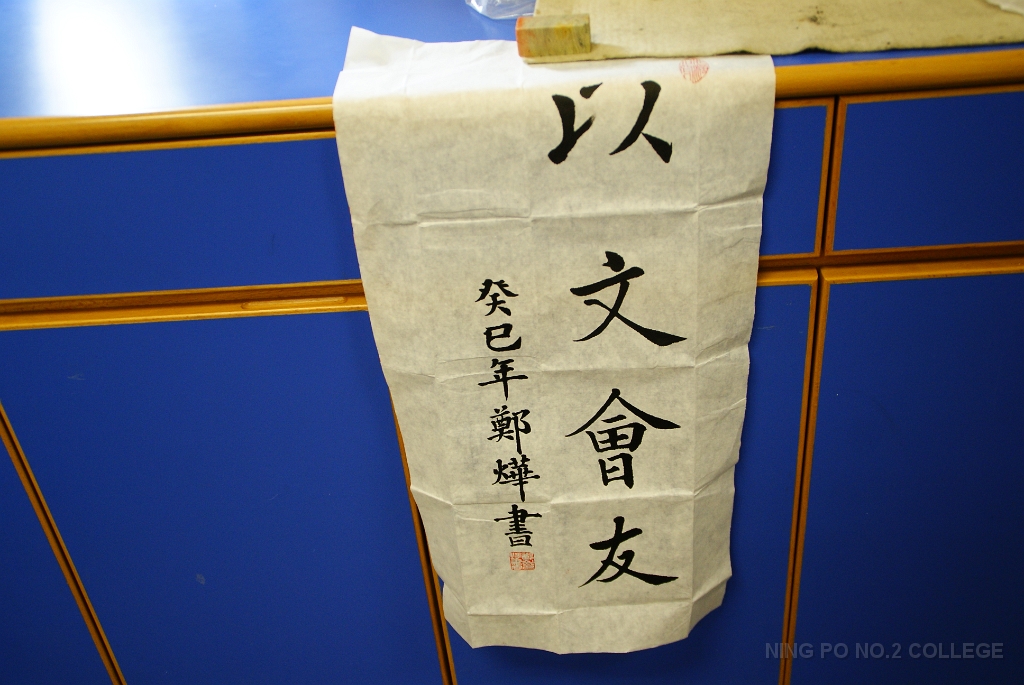 以文會友
癸巳年鄭燁書
NING PO NO.2 COLLEGE